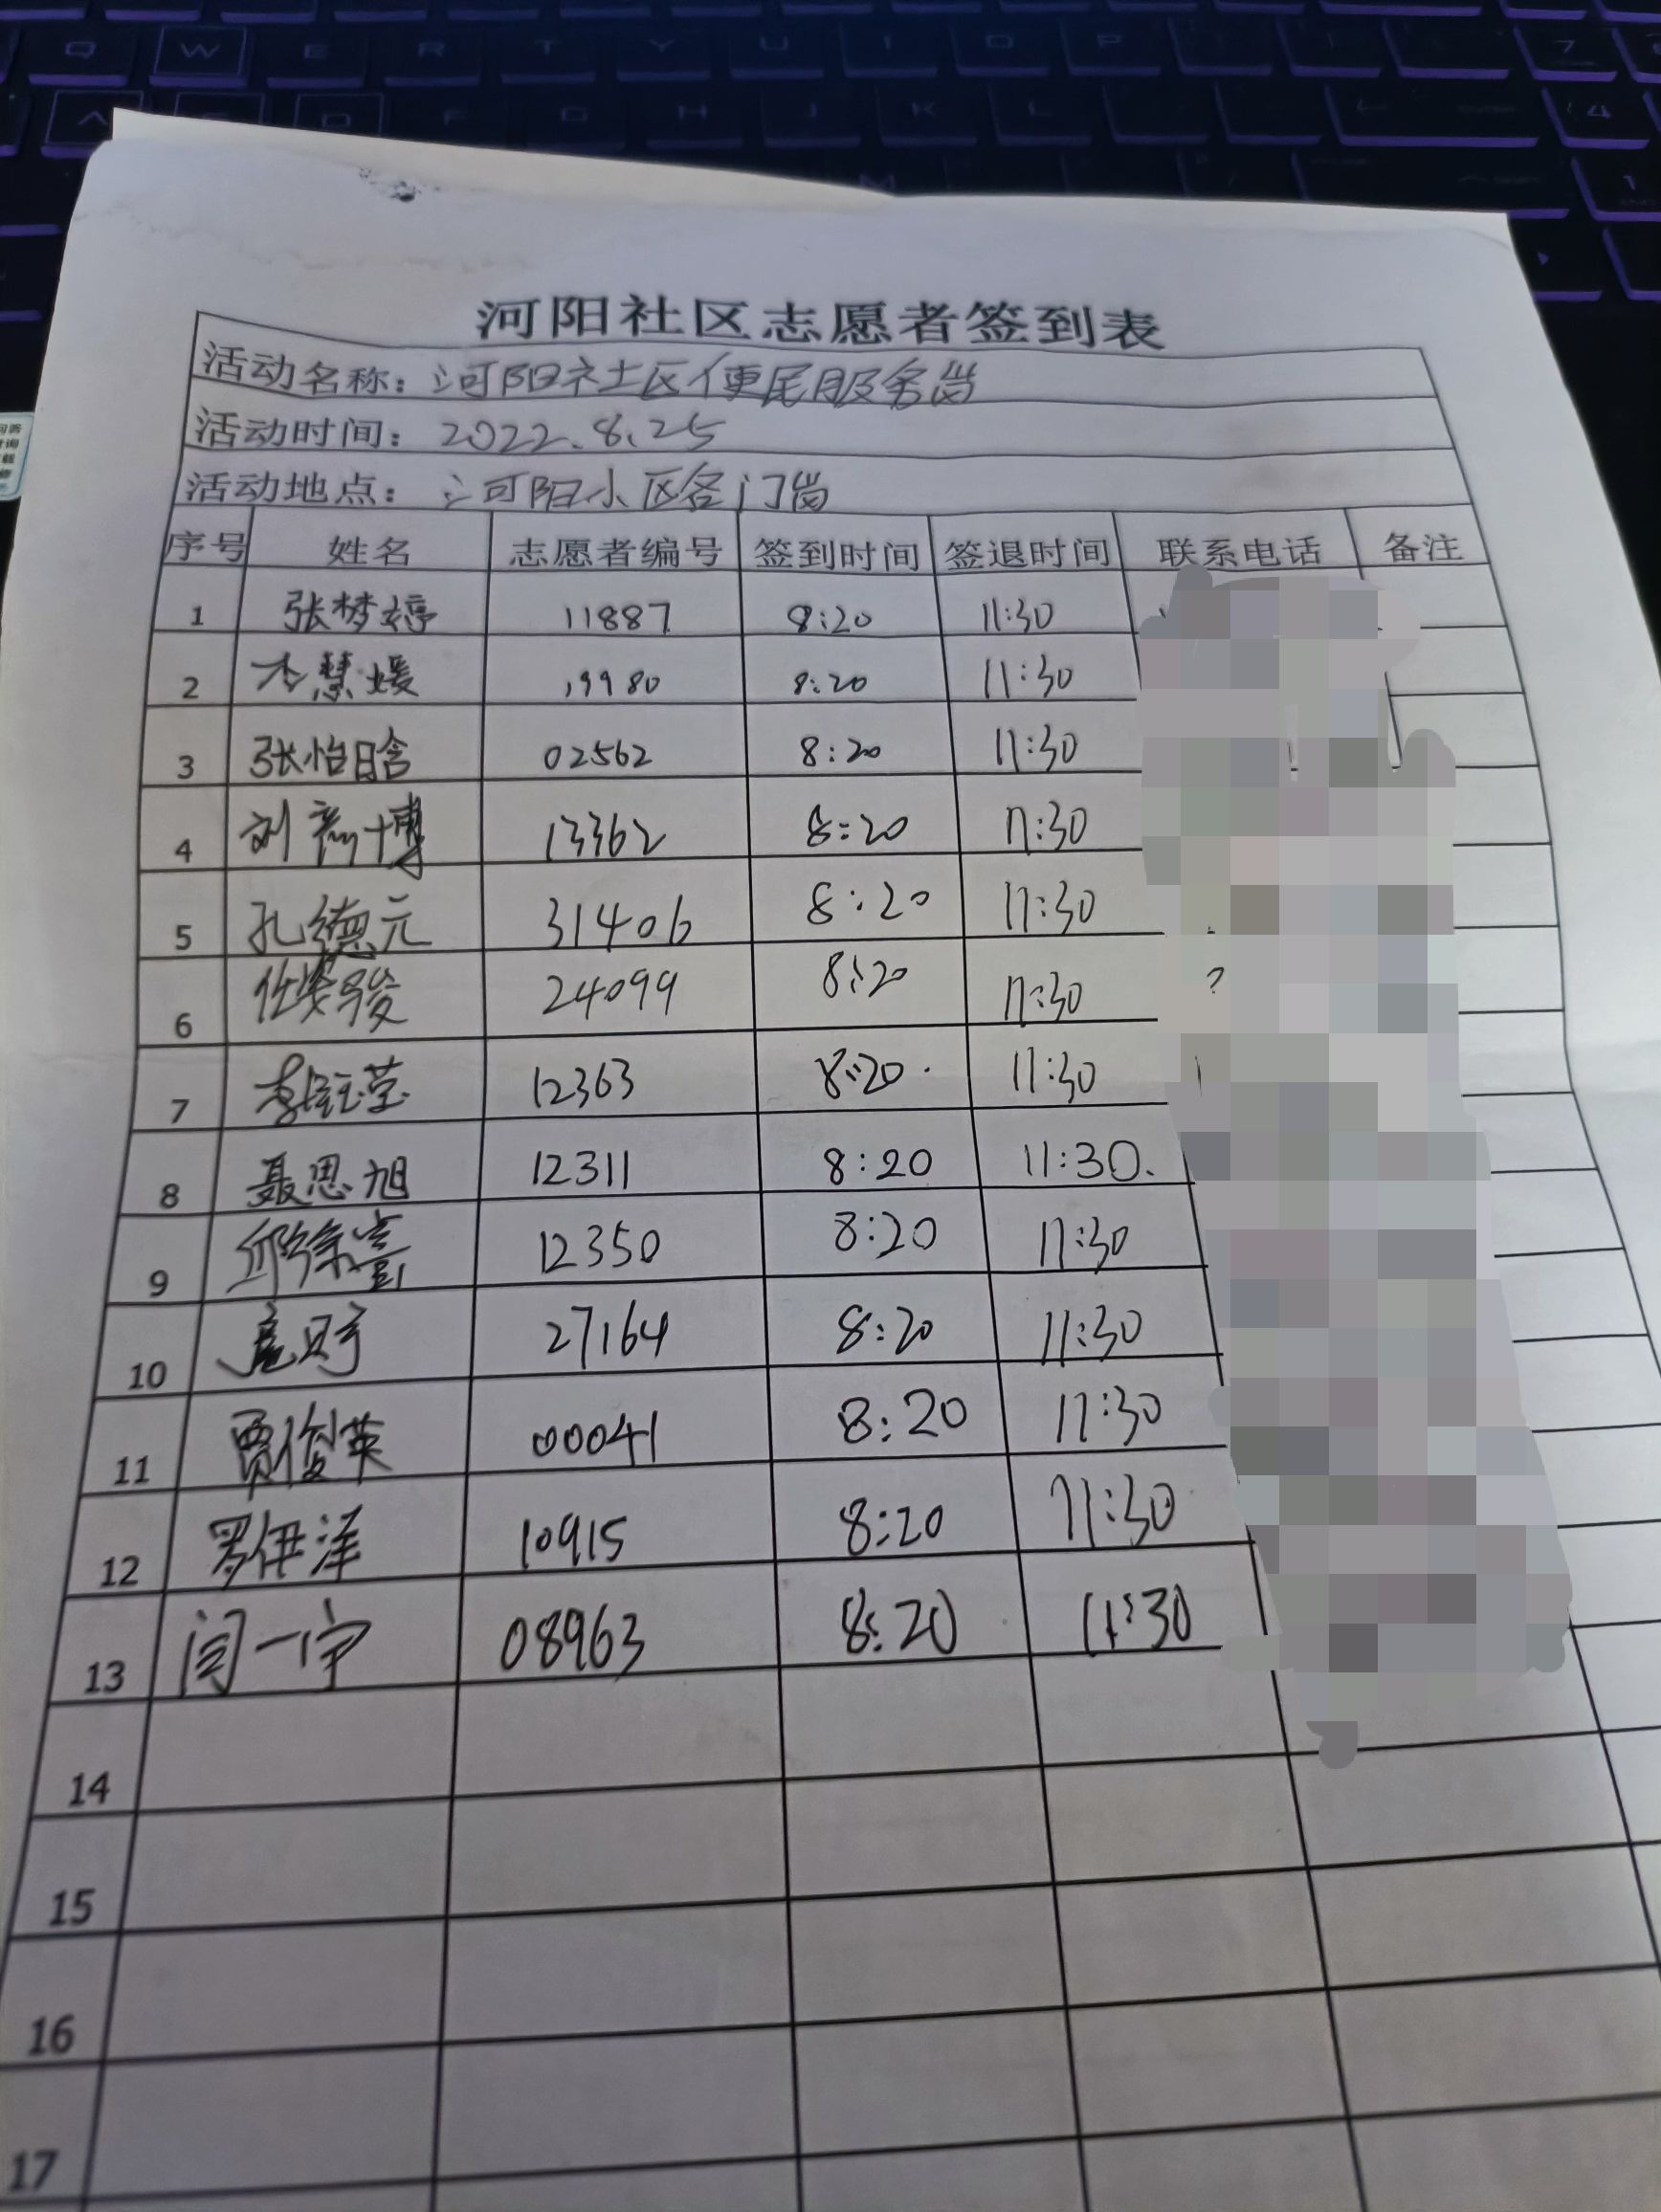 河阳社区志愿者签到表
活动名称：河阳社区便民服务岗
活动时间：2022.8.25
活动地点：河阳小区各门岗
序号 姓名 志愿者编号 签到时间 签退时间 联系电话 备注
1 张梦婷 11887 8:20 11:30
2 李慧媛 19980 8:20 11:30
3 张怡晗 02562 8:20 11:30
4 刘彦博 13362 8:20 11:30
5 孔德元 31406 8:20 11:30
6 任姿骏 24099 8:20 11:30
7 李钰莹 12363 8:20 11:30
8 聂思旭 12311 8:20 11:30.
9 邱徐 12350 8:20 11:30
10 27164 8:20 11:30
11 贾俊英 00041 8:20 11:30
12 罗伊泽 10915 8:20 11:30
13 闫一宁 08963 8:20 11:30
14
15
16
17